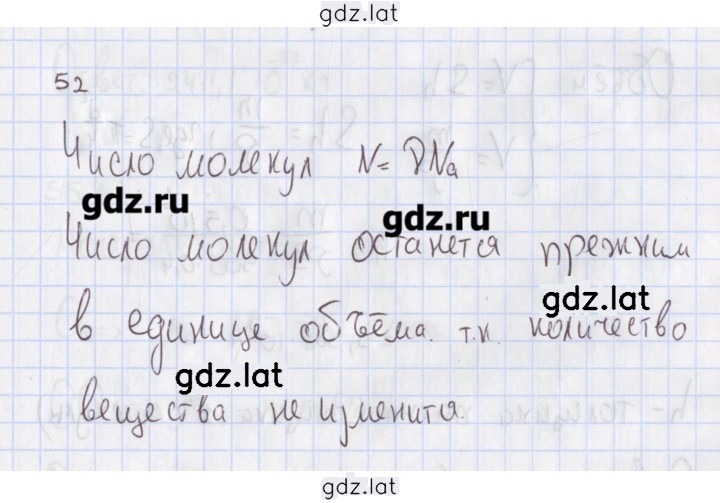 gdz.lat
52
Число молекул N = νNa
gdz.ru
gdz.ru
Число молекул останется прежним
gdz.lat
в единице объёма. т.к. количество
gdz.lat
вещества не изменится.
gdz.lat